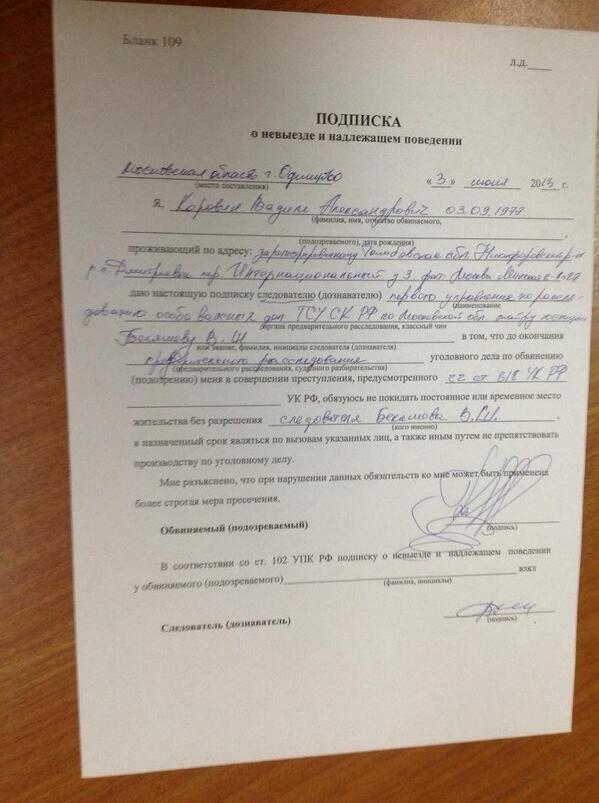 Бланк 109
Л.Д.____
ПОДПИСКА
о невыезде и надлежащем поведении
Московская область г. Одинцово « 3 » июля 2013 г.
(место составления)
Я, Коровин Вадим Александрович 03.09.1977
(фамилия, имя, отчество обвиняемого,
(подозреваемого), дата рождения)
проживающий по адресу: Тамбовская обл.
пер. Интернациональный д 3, Москва
даю настоящую подписку следователю (дознавателю) первого управления по рассле-
(наименование
дованию особо важных дел ГСУ СК РФ по Московской обл. майору юстиции
органа предварительного расследования, классный чин
Бекашеву В.Ш в том, что до окончания
или звание, фамилия, инициалы следователя (дознавателя)
предварительного расследования уголовного дела по обвинению
(предварительного расследования, судебного разбирательства)
(подозрению) меня в совершении преступления, предусмотренного ст 318 УК РФ
УК РФ, обязуюсь не покидать постоянное или временное место
жительства без разрешения следователя Бекашова В.Ш.
(кого именно)
в назначенный срок являться по вызовам указанных лиц, а также иным путем не препятствовать
производству по уголовному делу.
Мне разъяснено, что при нарушении данных обязательств ко мне может быть применена
более строгая мера пресечения.
Обвиняемый (подозреваемый)
(подпись)
В соответствии со ст. 102 УПК РФ подписку о невыезде и надлежащем поведении
у обвиняемого (подозреваемого) взял
(фамилия, инициалы)
Следователь (дознаватель)
(подпись)